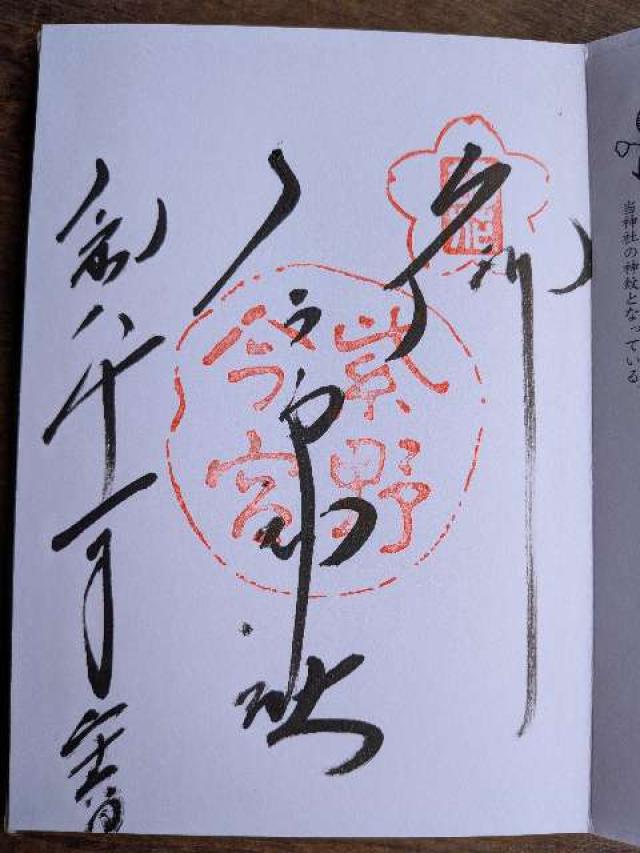 奉拝
紫野
今宮
今宮神社
令和八年一月
当神社の神紋となっている